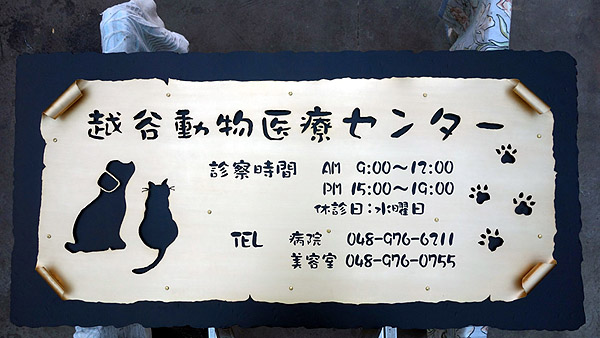 越谷動物医療センター
診察時間 AM 9:00～12:00
PM 15:00～19:00
休診日:水曜日
TEL 病院 048-976-6211
美容室 048-976-0755